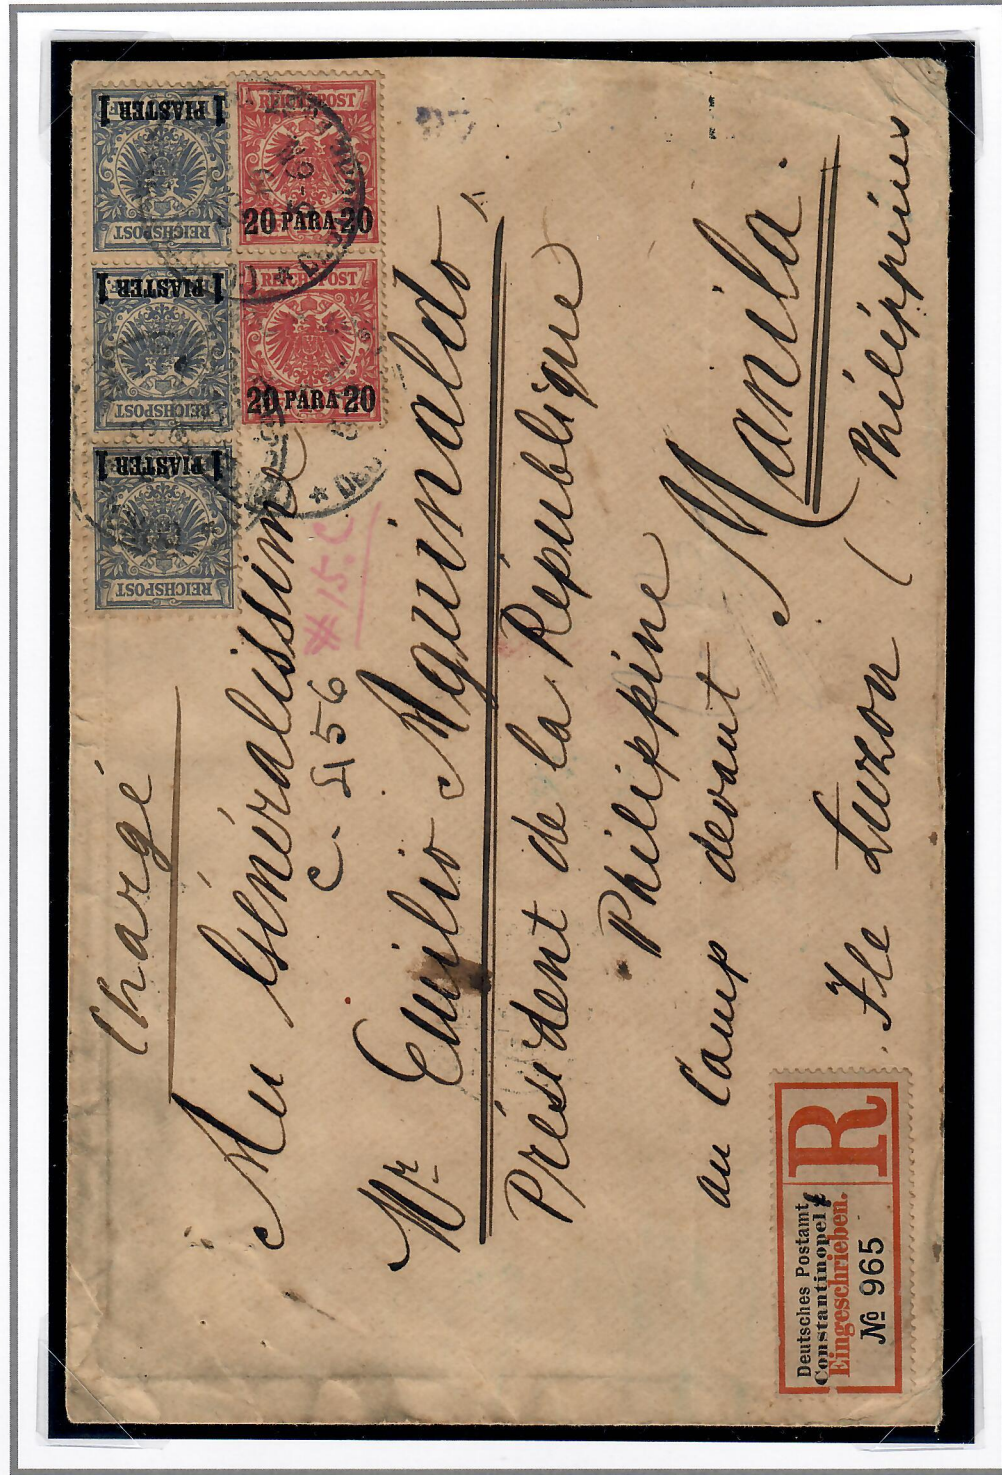 Chargé
Au Généralissime
C-456
* 15.C
Mr Emilio Aguinaldo
Président de la République
Philippine
au Camp devant Manila.
Ile Luzon (Philippines
1 PIASTER 1
REICHSPOST
1 PIASTER 1
REICHSPOST
1 PIASTER 1
REICHSPOST
REICHSPOST
20 PARA 20
REICHSPOST
20 PARA 20
R
Deutsches Postamt
Constantinopel
Eingeschrieben.
№ 965